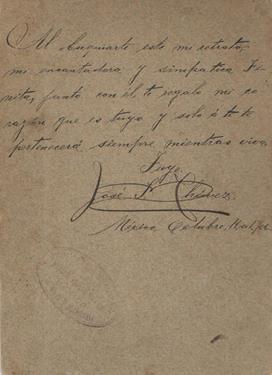 Al buquiarte esto mi retrato,
mi encantadora y simpatica Fi-
nita, junto con él te regalo mi co-
razón que es tuyo y solo á ti te
pertenecerá siempre mientras viva.
Tuyo
José Chávez
Octubre